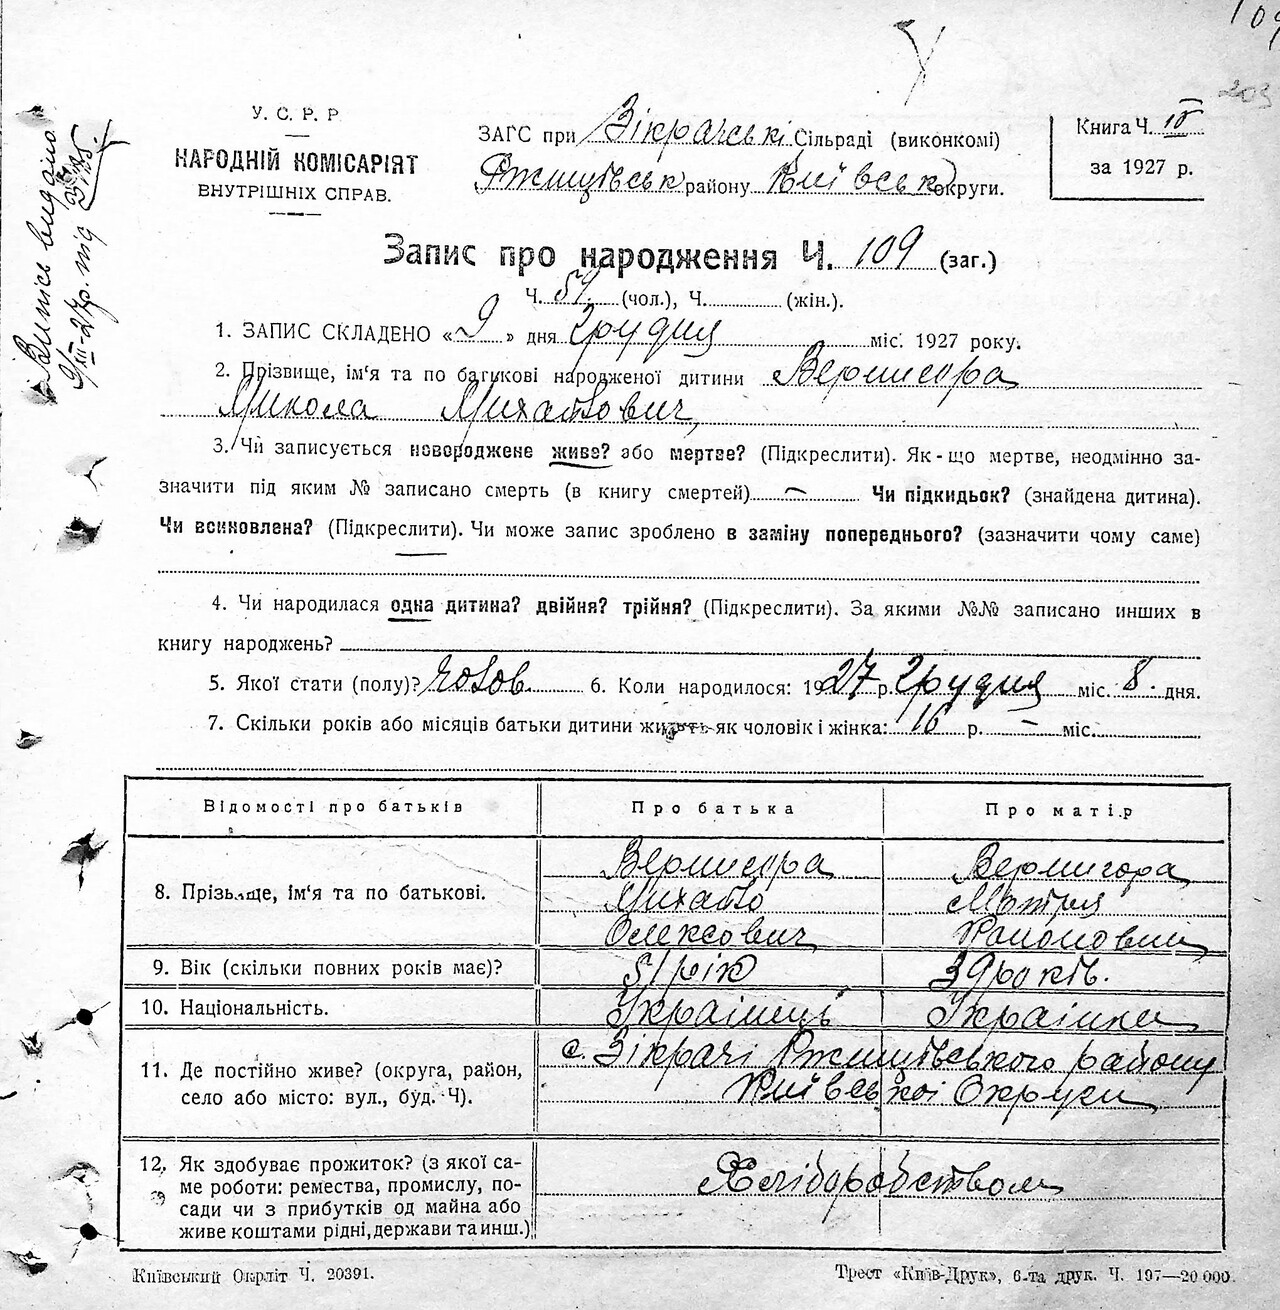 109
203
У. С. Р. Р.
НАРОДНІЙ КОМІСАРІЯТ
ВНУТРІШНІХ СПРАВ.
ЗАГС при Зікрачські Сільраді (виконкомі)
Ржищівськ району Київськ округи.
Книга Ч. III
за 1927 р.
Випись видано
9/XII-27р. під
Запис про народження Ч. 109 (заг.)
Ч. 51 (чол.), Ч. (жін.).
1. ЗАПИС СКЛАДЕНО « 9 » дня Грудня міс. 1927 року.
2. Прізвище, ім'я та по батькові народженої дитини Вермигора
Микола Михайлович,
3. Чи записується новороджене живе? або мертве? (Підкреслити). Як-що мертве, неодмінно за-
значити під яким № записано смерть (в книгу смертей) — Чи підкидьок? (знайдена дитина).
Чи всиновлена? (Підкреслити). Чи може запис зроблено в заміну попереднього? (зазначити чому саме)
4. Чи народилася одна дитина? двійня? трійня? (Підкреслити). За якими №№ записано инших в
книгу народжень?
5. Якої стати (полу)? чолов. 6. Коли народилося: 1927 р. Грудня міс. 8. дня.
7. Скільки років або місяців батьки дитини живуть як чоловік і жінка: 16 р. — міс.
Відомості про батьків Про батька Про матір
8. Прізвище, ім'я та по батькові.
Вермигора Вермигора
Михайло Мотря
Олексович
9. Вік (скільки повних років має)? 51 рік 39 років.
10. Національність. Українець Українка
11. Де постійно живе? (округа, район,
село або місто: вул., буд. Ч).
с. Зікрачі Ржищівського району
Київської Округи
12. Як здобуває прожиток? (з якої са-
ме роботи: ремества, промислу, по-
сади чи з прибутків од майна або
живе коштами рідні, держави та инш.)
Хліборобством
Київський Окрліт Ч. 20391.
Трест «Київ-Друк», 6-та друк. Ч. 197—20 000.